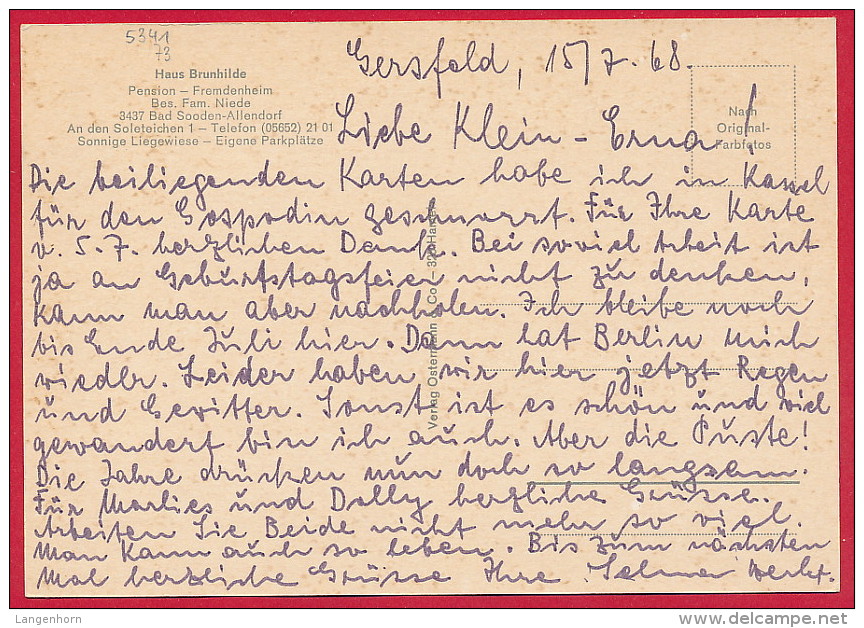 5341
73
Haus Brunhilde
Pension – Fremdenheim
Bes. Fam. Niede
3437 Bad Sooden-Allendorf
An den Soleteichen 1 – Telefon (05652) 21 01
Sonnige Liegewiese – Eigene Parkplätze
Nach
Original-
Farbfotos
Verlag Ostermann Co
Gersfeld, 15/7.68.
Liebe Klein-Erna!
Die beiliegenden Karten habe ich in Kassel
für den Gospodin geschnorrt. Für Ihre Karte
v. 5.7. herzlichen Dank. Bei soviel Arbeit ist
ja an Geburtstagsfeier nicht zu denken,
kann man aber nachholen. Ich bleibe noch
bis Ende Juli hier. Dann hat Berlin mich
wieder. Leider haben wir hier jetzt Regen
und Gewitter. Sonst ist es schön und viel
gewandert bin ich auch. Aber die Puste!
Die Jahre drücken nun doch so langsam.
Für Marlies und Dolly herzliche Grüsse.
Arbeiten Sie Beide nicht mehr so viel.
Man kann auch so leben. Bis zum nächsten
Mal herzliche Grüsse Ihre Selma
Langenhorn
delcampe.net